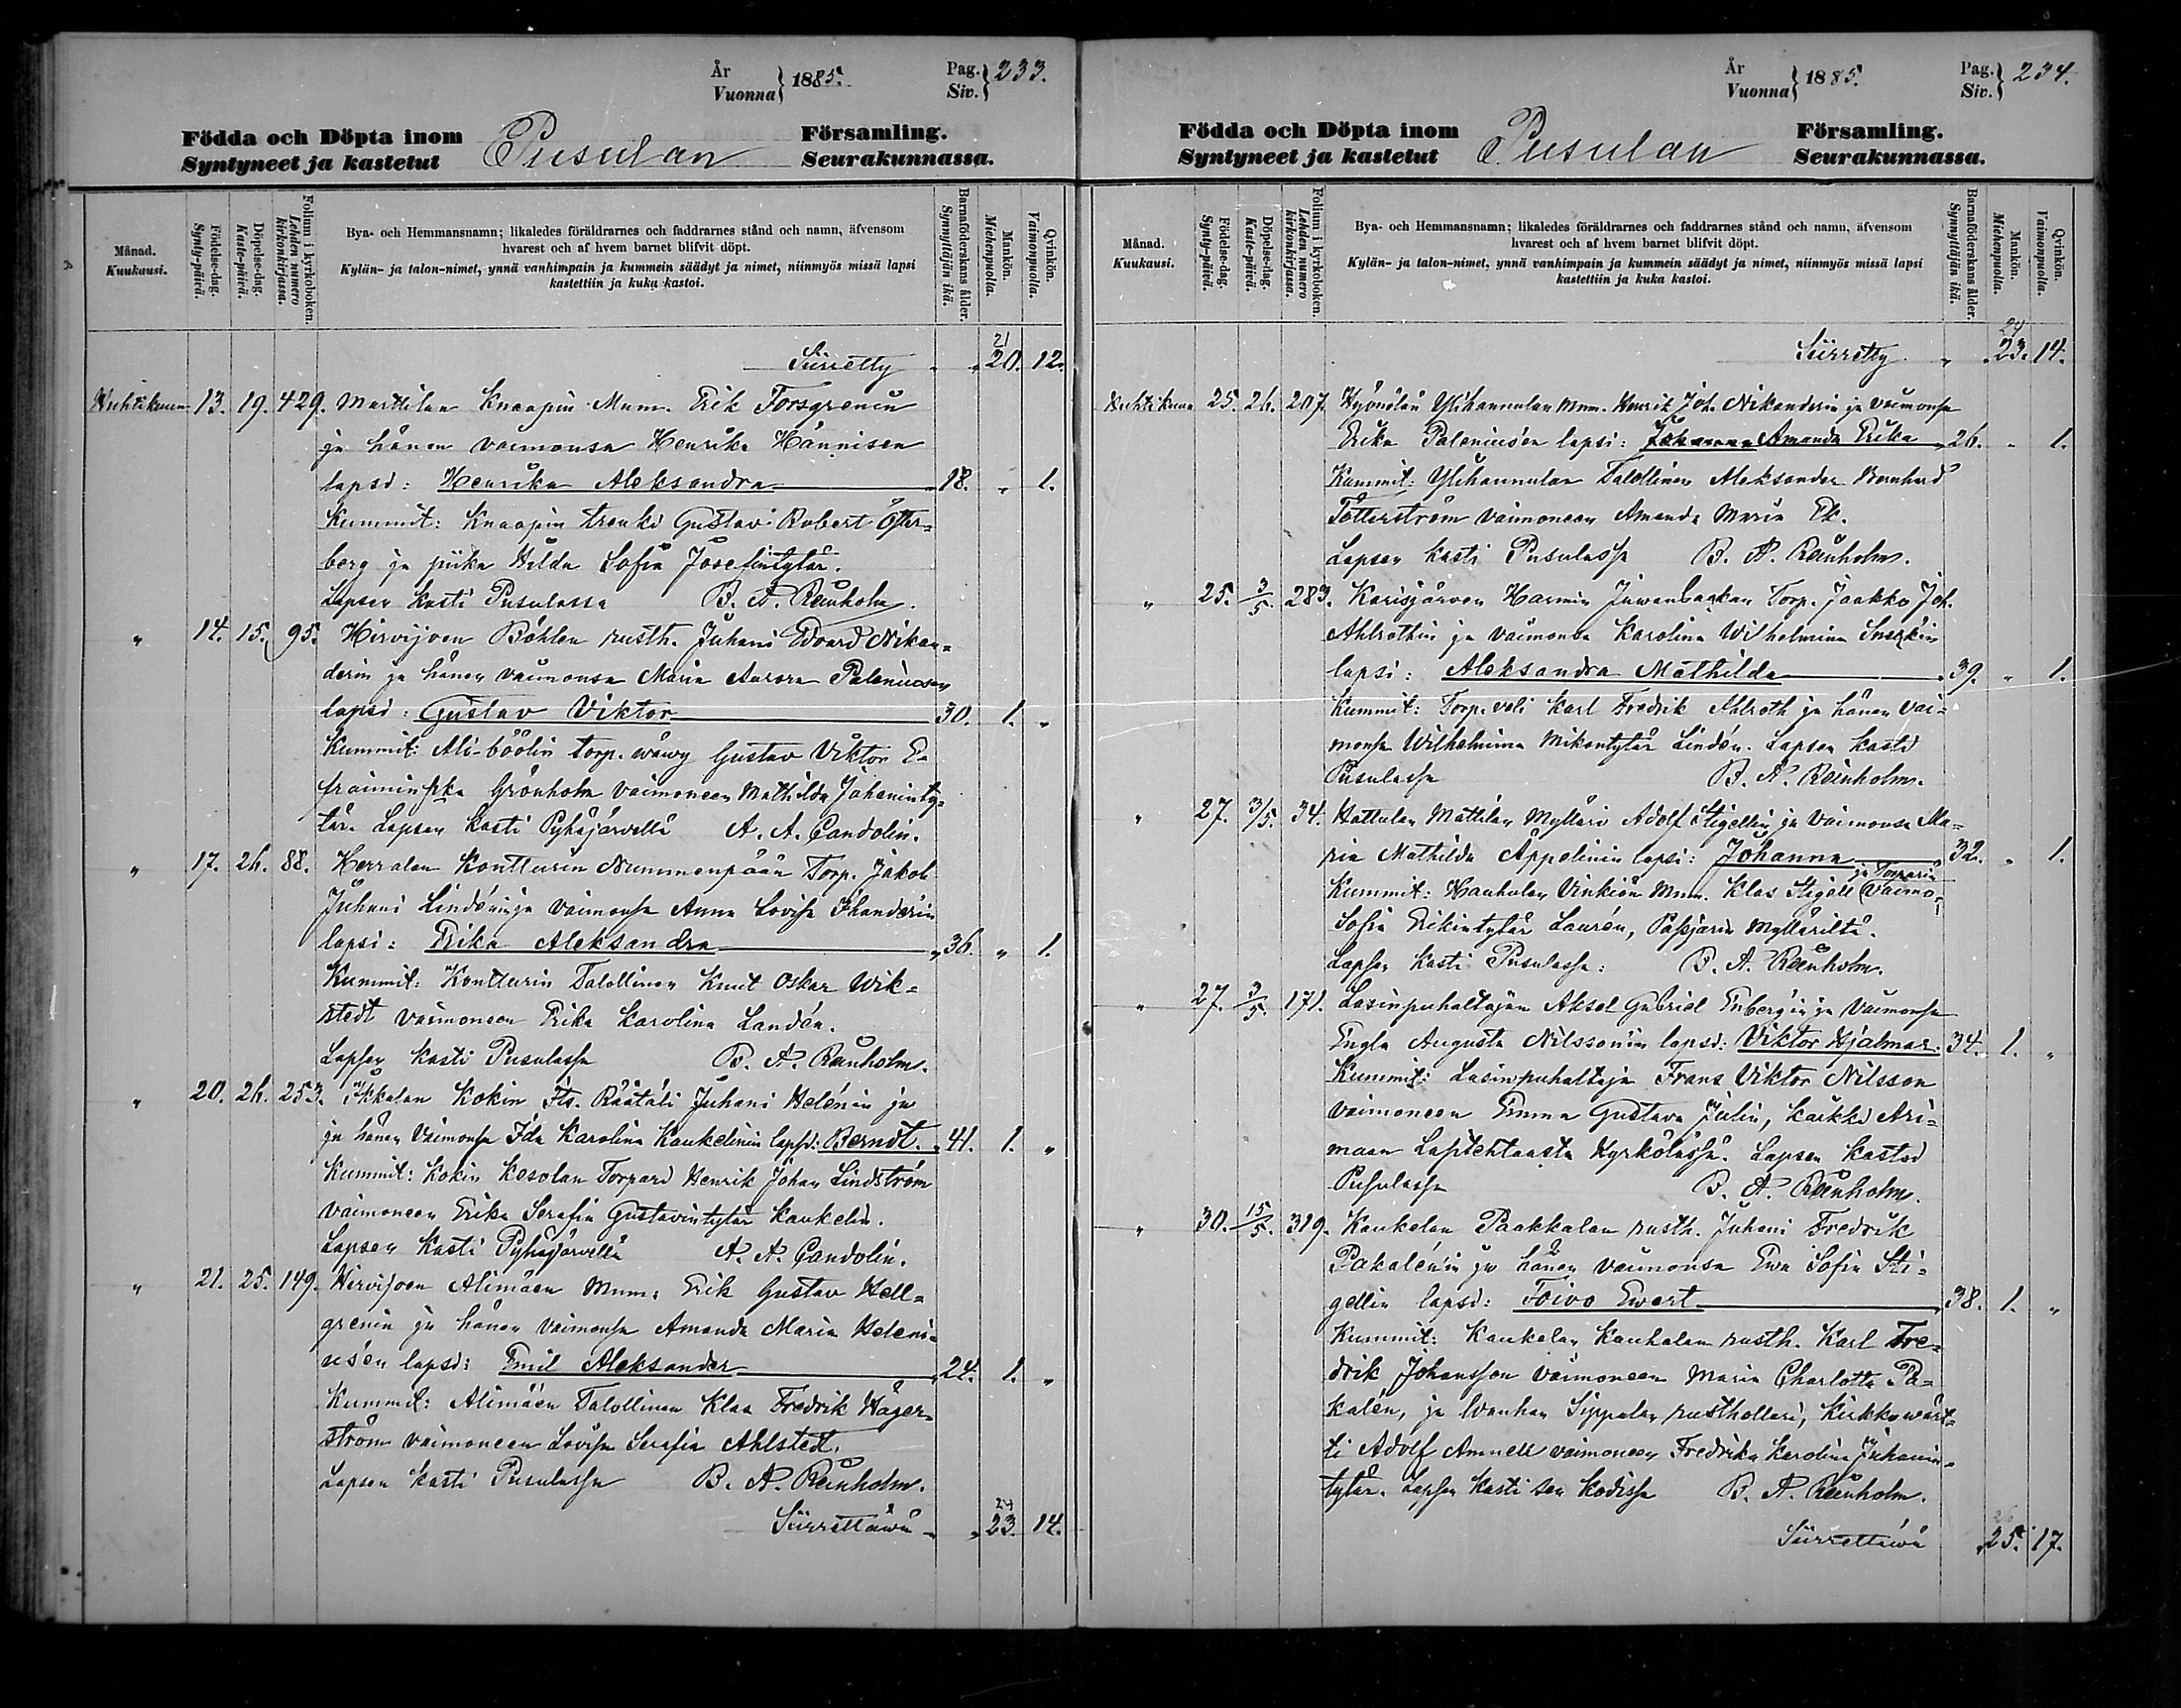 År
Vuonna } 1885.
Pag.
Siv. } 233.
Födda och Döpta inom
Syntyneet ja kastetut
Pusulan
Församling.
Seurakunnassa.
Månad.
Kuukausi.
Födelse-dag.
Synty-päivä.
Döpelse-dag.
Kaste-päivä.
Folium i kyrkoboken.
Lehden numero kirkonkirjassa.
Bya- och Hemmansnamn; likaledes föräldrarnes och faddrarnes stånd och namn, äfvensom
hvarest och af hvem barnet blifvit döpt.
Kylän- ja talon-nimet, ynnä vanhimpain ja kummein säädyt ja nimet, niinmyös missä lapsi
kastettiin ja kuka kastoi.
Barnaföderskans ålder.
Synnyttäjän ikä.
Mankön.
Miehenpuolia.
Qvinkön.
Vaimonpuolia.
21
Siirretty " 20. 12.
Huhtikuun 13. 19. 429. Marttilan Knaapin Mum. Erik Forsgrenin
ja hänen vaimonsa Henrika Hännisen
lapsi: Henrika Aleksandra 18. " 1.
Kummit: Knaapin trenki Gustav Robert Öster-
berg ja piika Hilda Sofia Josefintytär.
Lapsen kasti Pusulassa B. A. Reinholm.
" 14. 15. 95. Hirvijoen Böhlen rusth. Juhani Edvard Nikan-
derin ja hänen vaimonsa Maria Aurora Paleniusen
lapsi: Gustav Viktor 30. 1. "
Kummit: Ali-böölin torp. wäwy Gustav Viktor E-
fraiminpka Grönholm vaimoneen Mathilda Johaninty-
tär. Lapsen kasti Pyhäjärvellä A. A. Candolin.
" 17. 26. 88. Herralan Kontturin Nummenpään Torp. Jakob
Juhani Lindénin ja vaimonsa Anna Lovisa
lapsi: Erika Aleksandra " 36. " 1.
Kummit: Kontturin Talollinen Knut Oskar Wik-
stedt vaimoneen Erika Karolina Landén.
Lapsen kasti Pusulassa B. A. Reinholm.
" 20. 26. 253. Ikkalan Kokin Its. Räätäli Juhani Helénin ja
ja hänen Vaimonsa Ida Karolina Kaukelinin lapsi: Berndt. 41. 1. "
Kummit: Kokin Kesolan Torpari Henrik Johan Lindström
vaimoneen Erika Serafia Gustavintytär Kaukelin.
Lapsen kasti Pyhäjärvellä A. A. Candolin.
" 21. 25. 149. Hirvijoen Alimäen Mum. Erik Gustav Hell-
grenin ja hänen vaimonsa Amanda Maria Heleni-
usen lapsi: Emil Aleksander 24. 1. "
Kummit: Alimäen Talollinen Klas Fredrik Häger-
ström vaimoneen Lovisa Serafia Ahlstedt.
Lapsen kasti Pusulassa B. A. Reinholm.
24
Siirrettäwä " 23. 14.
År
Vuonna } 1885.
Pag.
Siv. } 234.
Födda och Döpta inom
Syntyneet ja kastetut
Pusulan
Församling.
Seurakunnassa.
Månad.
Kuukausi.
Födelse-dag.
Synty-päivä.
Döpelse-dag.
Kaste-päivä.
Folium i kyrkoboken.
Lehden numero kirkonkirjassa.
Bya- och Hemmansnamn; likaledes föräldrarnes och faddrarnes stånd och namn, äfvensom
hvarest och af hvem barnet blifvit döpt.
Kylän- ja talon-nimet, ynnä vanhimpain ja kummein säädyt ja nimet, niinmyös missä lapsi
kastettiin ja kuka kastoi.
Barnaföderskans ålder.
Synnyttäjän ikä.
Mankön.
Miehenpuolia.
Qvinkön.
Vaimonpuolia.
24
Siirretty " 23. 14.
Huhtikuun 25. 26. 207. Hyönölän Ylihannulan Mum. Henrik Joh. Nikanderin ja vaimonsa
Erika Paleniusen lapsi: Johanna Amanda Erika 26. " 1.
Kummit: Ylihannulan Talollinen Aleksander Bernhard
Tötterström vaimoneen Amanda Maria Ek.
Lapsen kasti Pusulassa B. A. Reinholm.
" 25. 3/5. 283. Karisjärven Harmin Juwanlaakan Torp. Jaakko Joh.
Ahlrothin ja vaimonsa Karolina Wilhelmina
lapsi: Aleksandra Mathilda 39. " 1.
Kummit: Torp. veli Karl Fredrik Ahlroth ja hänen vai-
monsa Wilhelmina Mikontytär Lindén. Lapsen kasti
Pusulassa B. A. Reinholm.
" 27. 3/5. 34. Hattulan Mattilan Mylläri Adolf Stigellin ja Vaimonsa Ma-
ria Mathilda Äppelinin lapsi: Johanna 32. " 1.
ja Torparin
Kummit: Haukulan Vinkiön Mum. Klas Stigell Vaimo
Sofia Erikintytär Laurén, Mylläriltä.
Lapsen kasti Pusulassa: B. A. Reinholm.
" 27. 3/5. 171. Lasinpuhaltajan Aksel Gabriel Enbergin ja Vaimonsa
Engla Augusta Nilssonin lapsi: Viktor Hjalmar. 34. 1. "
Kummit: Lasinpuhaltaja Frans Viktor Nilsson
vaimoneen Emma Gustava Julin, kaikki Ari-
maan Lasitehtaasta Hyrkölässä. Lapsen kastoi
Pusulassa B. A. Reinholm.
" 30. 15/5. 319. Kaukelan Paakkalan rusth. Juhani Fredrik
Pakalénin ja hänen vaimonsa Ewa Sofia Sti-
gellin lapsi: Toivo Ewert 38. 1. "
Kummit: Kaukelan Kauhalan rusth. Karl Fre-
drik Johansson vaimoneen Maria Charlotta Pa-
kalén, ja Wanhan Sippalan rusthollari, Kirkkowärt-
ti Adolf Amnell vaimoneen Fredrika Karolina Juhanin-
tytär. Lapsen kasti sen kodissa B. A. Reinholm.
26
Siirrettäwä " 25. 17.